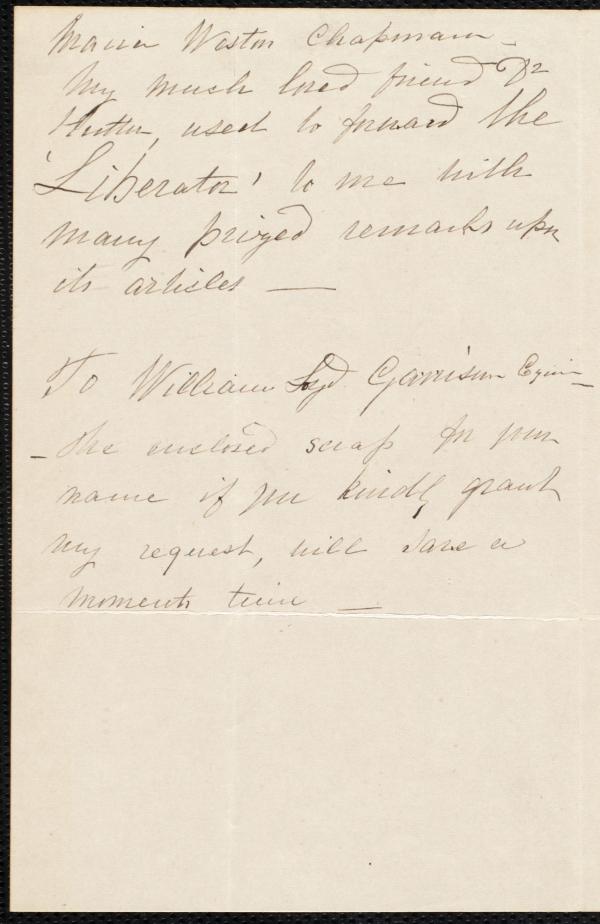 Maria Weston Chapman -
My much loved friend Dr
used to forward the
'Liberator' to me with
many prized remarks upon
its articles —
To William Loyd Garrison
- The enclosed scrap for your
name if you kindly grant
my request, will save a
moments time —